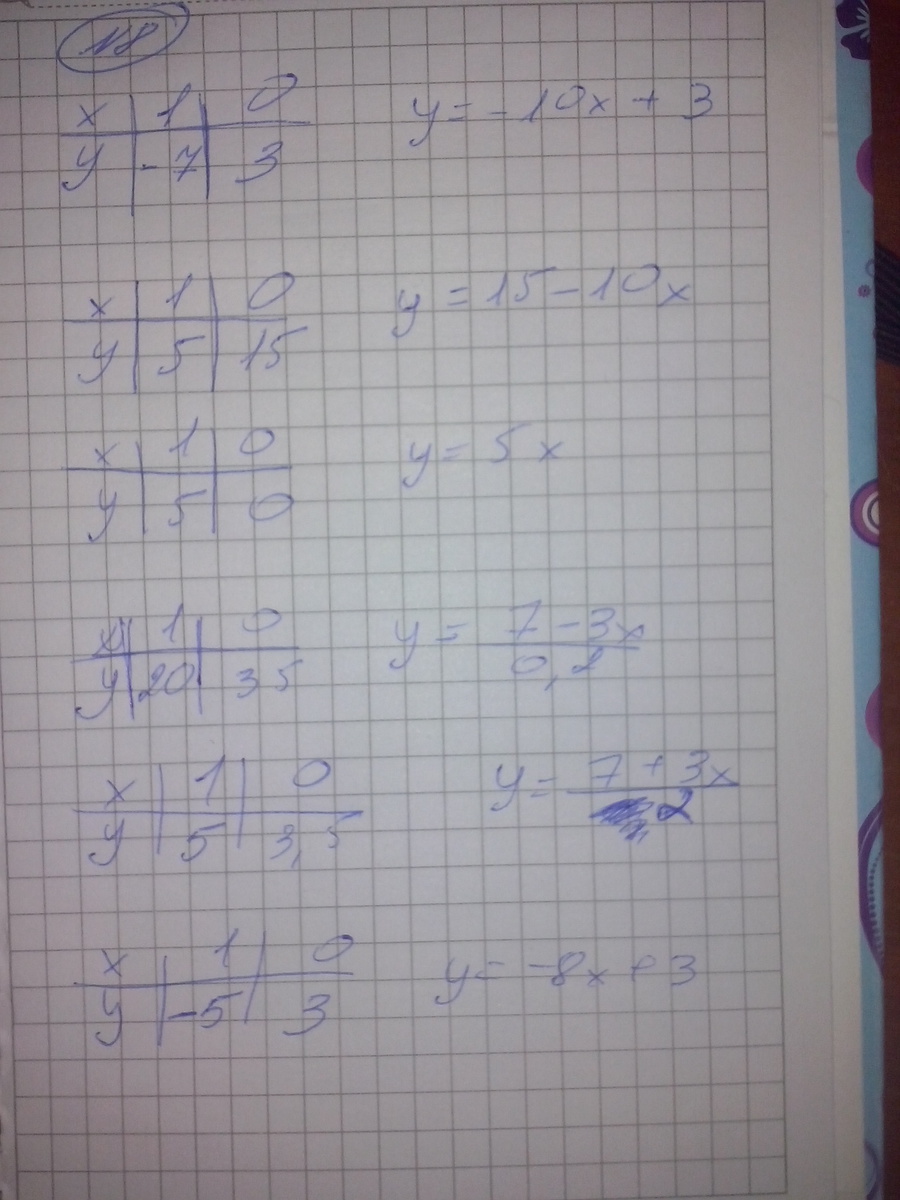 118
x | 1 | 0    y = -10x + 3
y | -7 | 3
x | 1 | 0    y = 15 - 10x
y | 5 | 15
x | 1 | 0    y = 5x
y | 5 | 0
x | 1 | 0    y = 7 - 3x
y | 20 | 35    0,2
x | 1 | 0    y = 7 + 3x
y | 5 | 3,5    2
x | 1 | 0    y = -8x + 3
y | -5 | 3